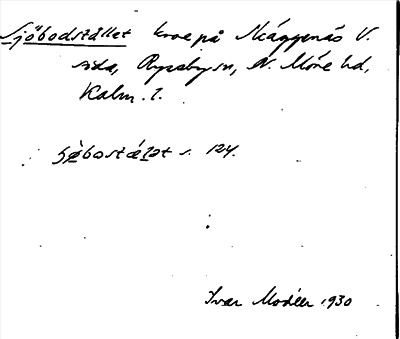 Sjöbodstället kroe på Skäggenäs V.
sida, Ryssby sn, N. Möre hd,
Kalm. l.
sjöbostälet s. 124.
Ivar Modéer 1930